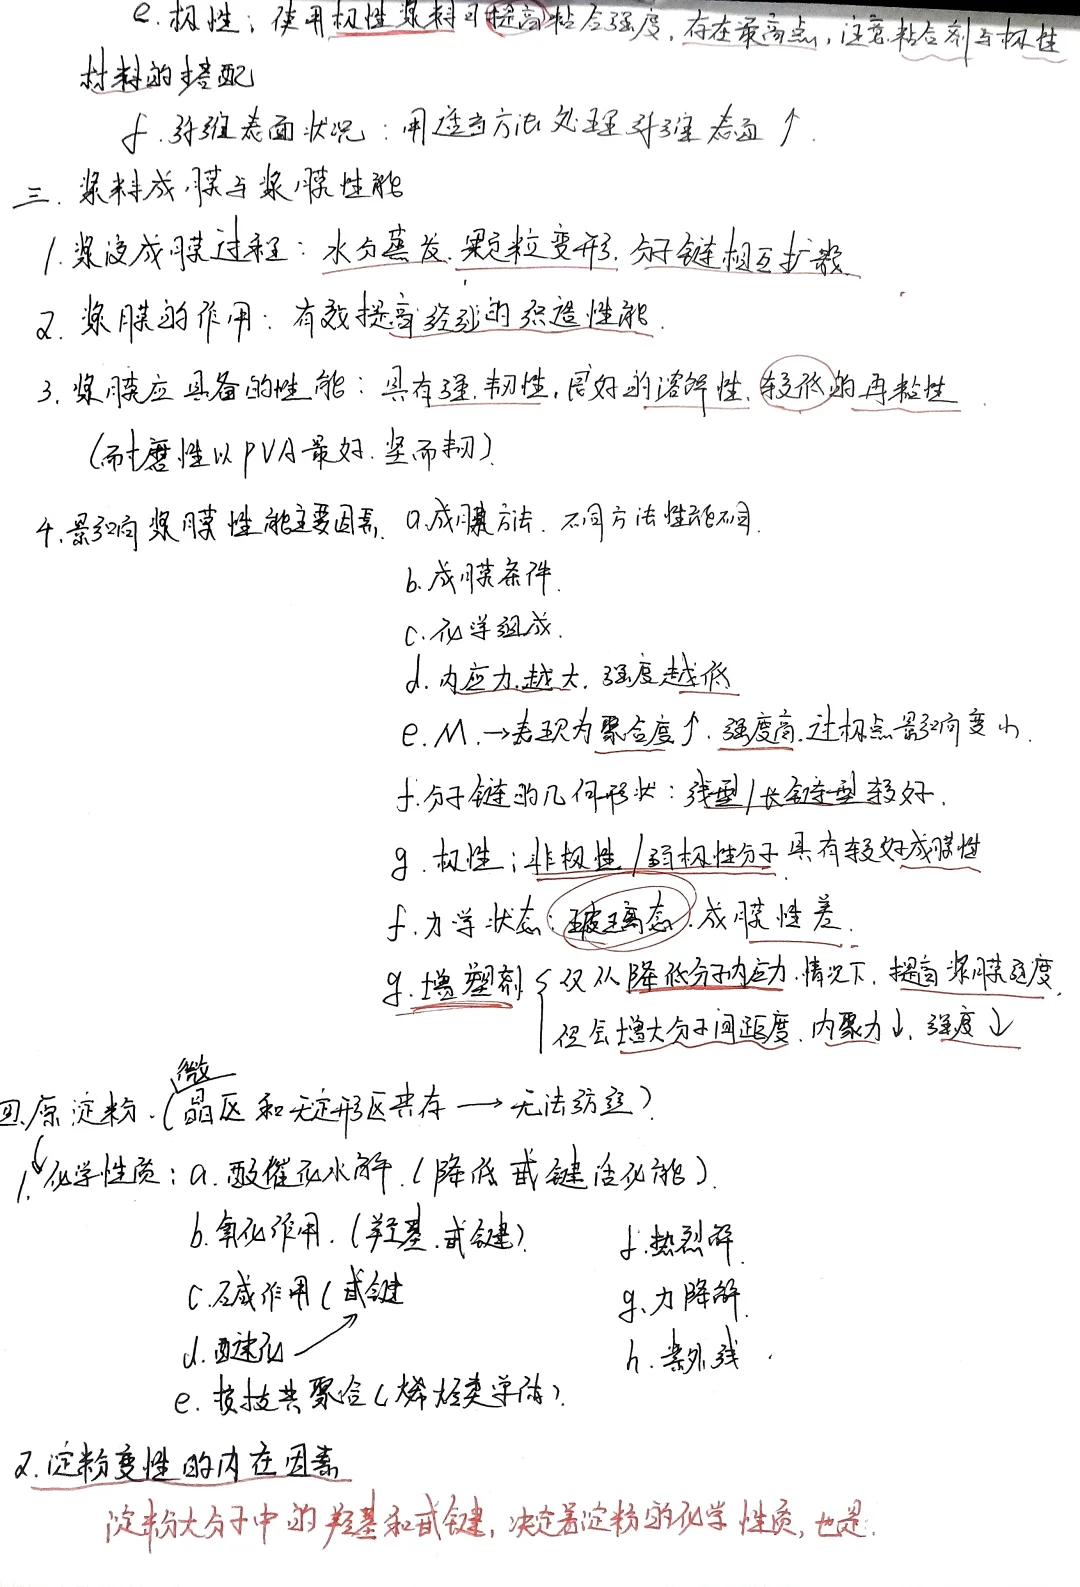 e.极性：使用极性浆料可提高粘合强度，存在最高点，注意粘合剂与极性
材料的搭配
f.纤维表面状况：用适当方法处理纤维表面↑.
三.浆料成膜与浆膜性能
1.浆液成膜过程：水分蒸发.颗粒变形.分子链相互扩散.
2.浆膜的作用：有效提高经纱的织造性能.
3.浆膜应具备的性能：具有强.韧性,良好的溶解性.较低的再粘性.
(耐磨性以PVA最好.坚而韧).
4.影响浆膜性能主要因素. a.成膜方法.不同方法性能不同.
b.成膜条件.
c.化学组成.
d.内应力越大.强度越低
e.M.→表现为聚合度↑.强度高.过极点影响变小.
f.分子链的几何形状：线型/长链型较好.
g.极性；非极性/弱极性分子具有较好成膜性
f.力学状态：玻璃态.成膜性差.
g.增塑剂{仅从降低分子内应力.情况下.提高浆膜强度,
但会增大分子间距度.内聚力↓.强度↓
四.原淀粉.(微晶区和无定形区共存→无法纺丝).
1.化学性质：a.酸催化水解.(降低甙键活化能).
b.氧化作用.(羟基.甙键).
c.碱作用(甙键
d.酯化
e.接枝共聚合(烯烃类单体).
f.热裂解.
g.力降解.
h.紫外线.
2.淀粉变性的内在因素
淀粉大分子中的羟基和甙键,决定着淀粉的化学性质,也是.